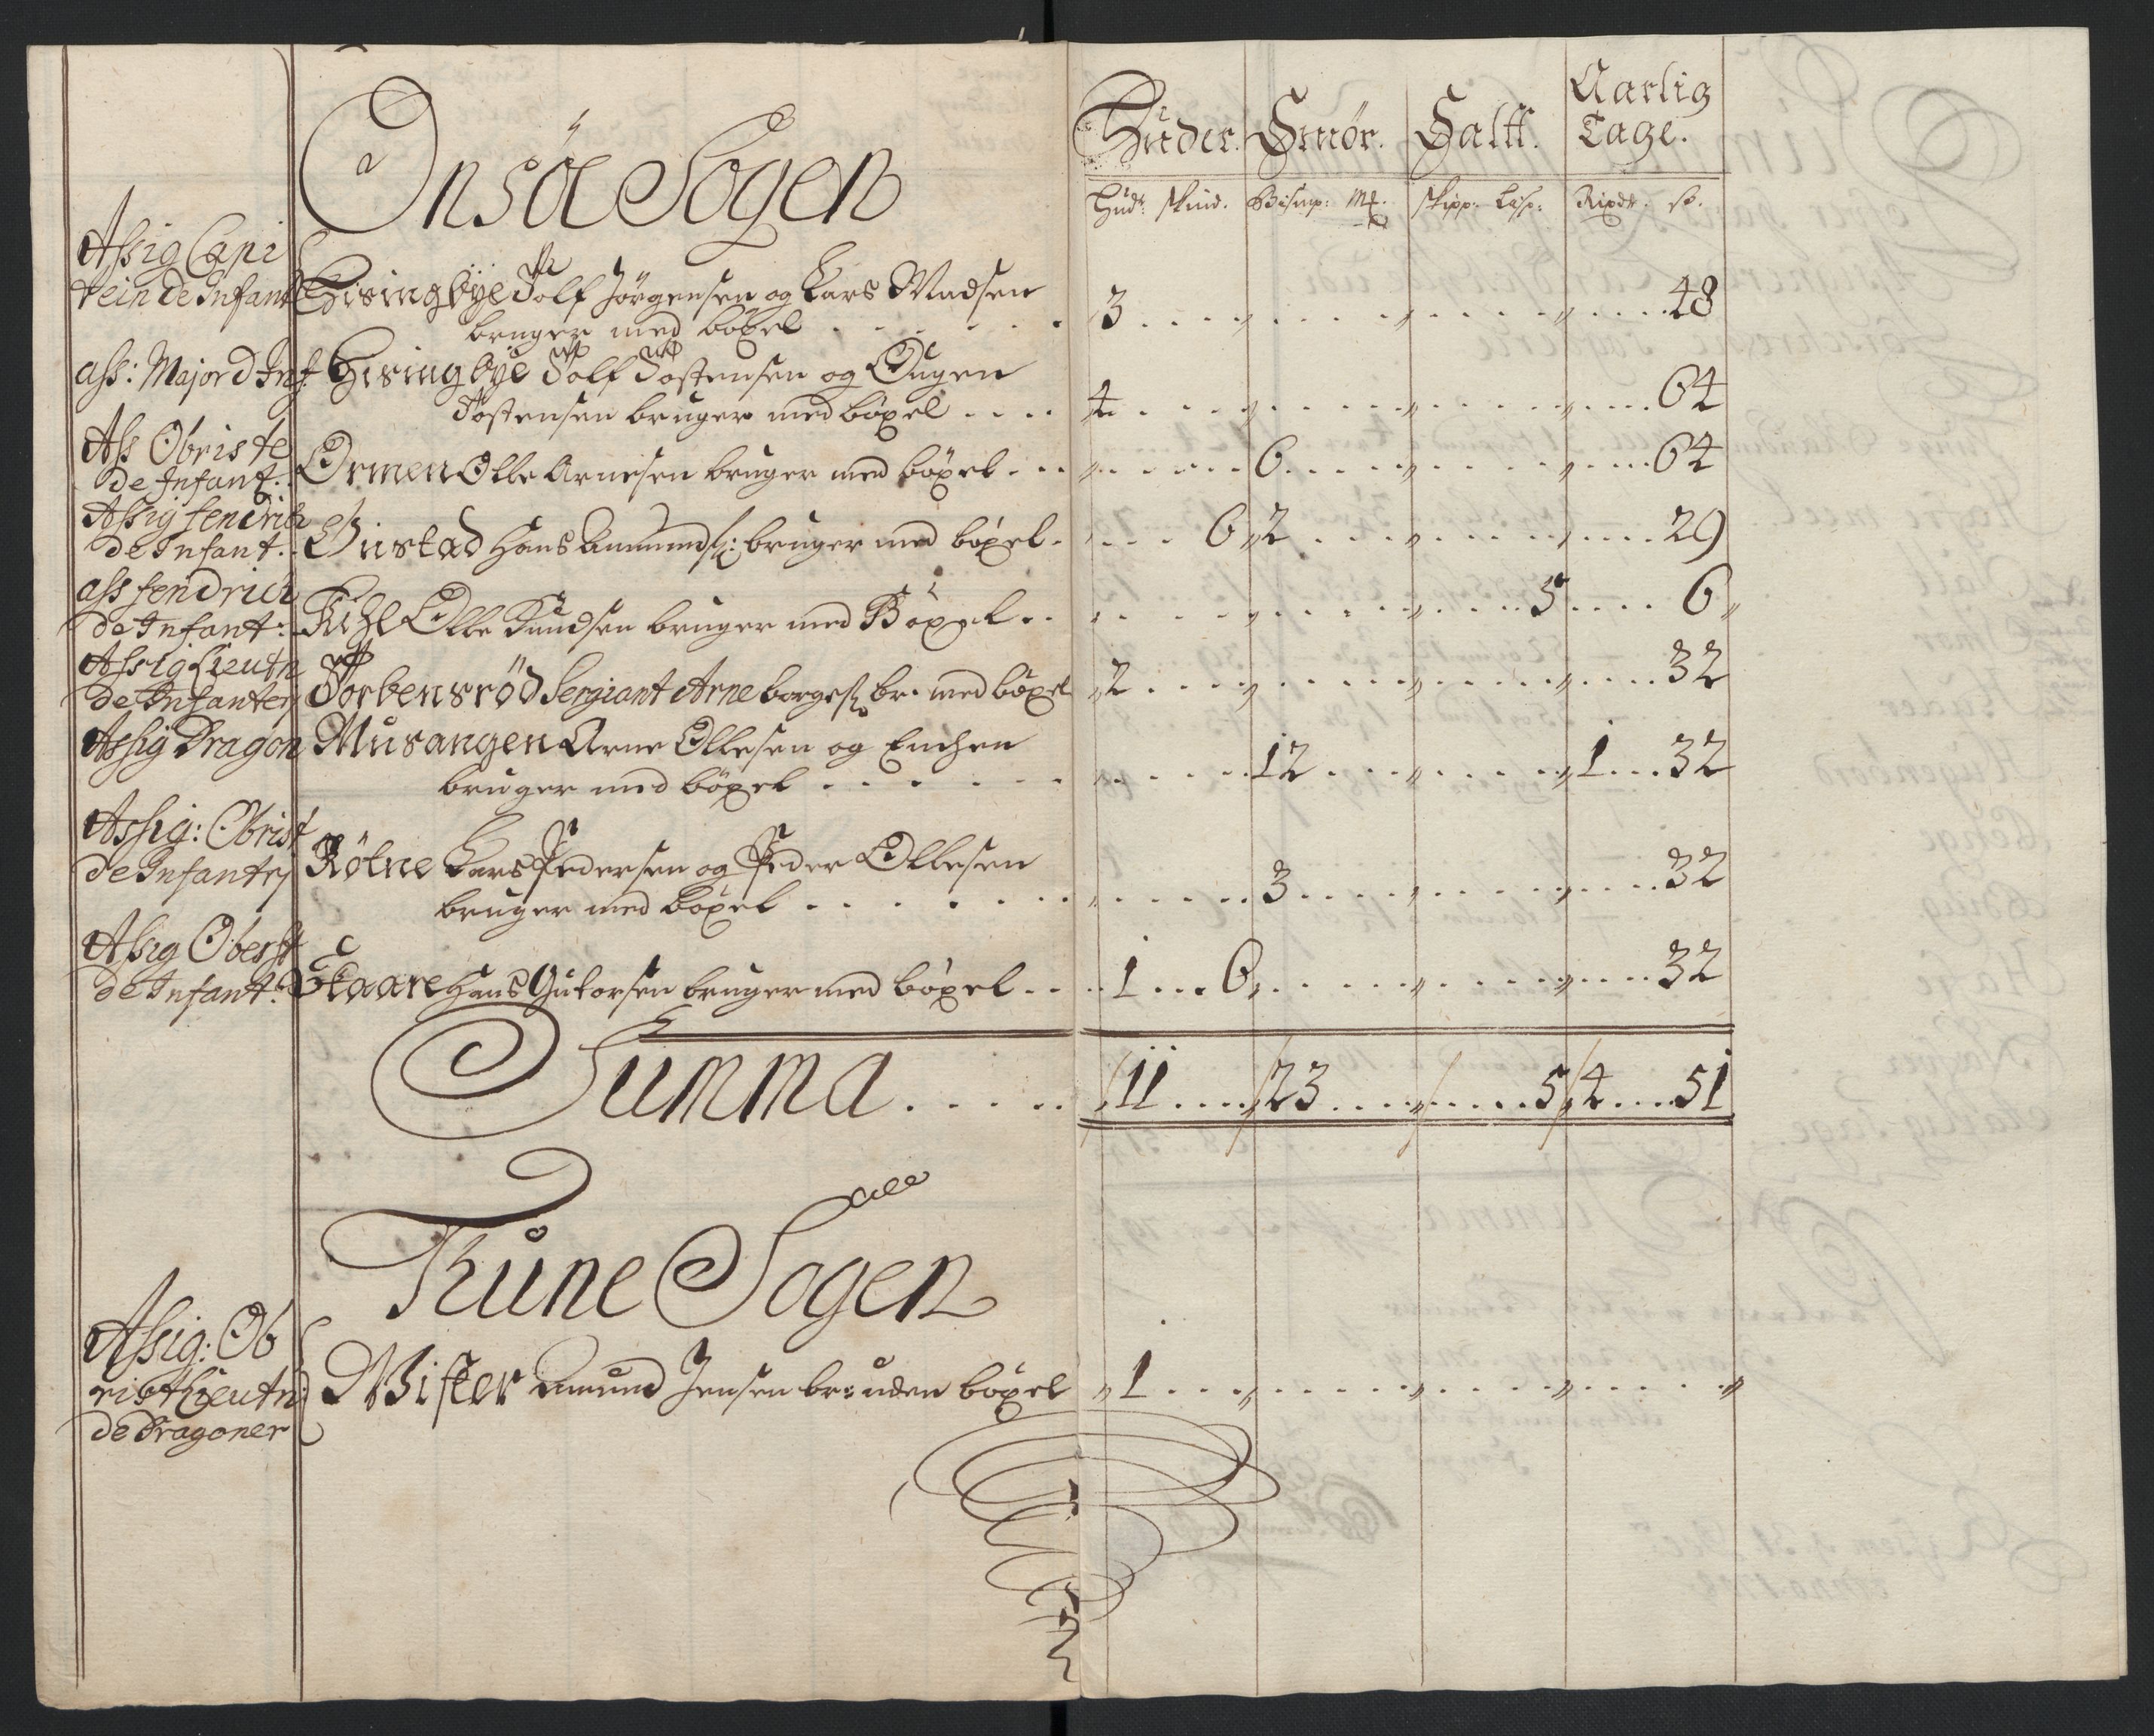 Huder. Smör. Saltt. Aarlig Tage.
Hudr. Skind. Bismp: M℔. Skipp: Lisp: Rixdr. sz.
Onsöe Sogen
Assig Capi
tein de Infant
Hisingbÿe Tolf Jörgensen og Lars Madsen
bruger med böxel . . . . . . 3 . . . . „ . . . . „ . . . . „ . . . . 48
ass: Major d Inf: Hisingbÿe Tolf Tostensen og Ougen
Tostensen bruger med böxel . . . . 4 . . . . „ . . . . „ . . . . „ . . . . 64
Ass Obriste
de Infant: Ormen Olle Arnesen bruger med böxel . . . „ . . . . 6 . . . . „ . . . . „ . . . . 64
Assig fendrich
de Infant: Gustad Hans Amunds: bruger med böxel . . . . 6 „ 2 . . . . „ . . . . „ . . . . 29
ass fendrich
de Infant: Kihl Olle Knudsen bruger med Böxel . . . . . . . . . . 5 . . . . 6 „
Assig Lieutn
de Infanteri Torbensröd Sergiant Arne borges: br. med böxel „ 2 . . . . „ . . . . „ . . . . „ . . . . 32
Assig Dragon Musangen Arne Ollesen og Enchen
bruger med böxel . . . . . . „ . . . . 12 . . . . „ . . . . „ 1 . . . 32
Assig: Obrist
de Infantrj Rölne Lars Pedersen og Peder Ollesen
bruger med böxel . . . . . . „ . . . . 3 . . . . „ . . . . „ . . . . 32
Assig Oberst
de Infant: Skaare Hans Gutorsen bruger med böxel . . . . 1 . . . 6 „ . . . . „ . . . . „ . . . . 32
Summa . . . . . 11 . . . . „ 23 . . . . „ . . . . 5 „ 4 . . . 51
Thune Sogen
Assig: Ob
rist Lieutn:
de Dragoner
Wister Amund Jensen br: uden böxel „ 1 . . . „ . . . . „ . . . . „ . . . . „